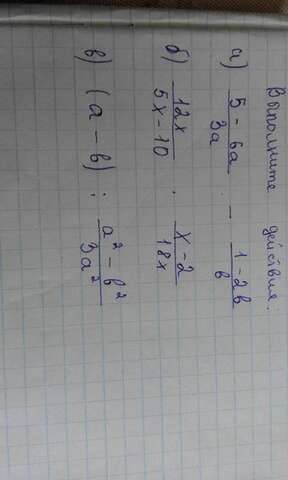 Выполните действия:
а) 5 - 6a / 3a - 1 - 2в / в
б) 12x / 5x - 10 · x - 2 / 18x
в) (a - в) : a² - в² / 3a²